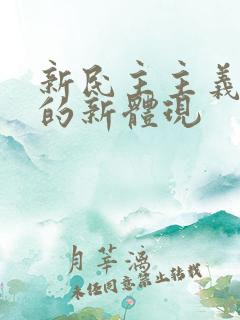 新民主主義
的新體現
月莘漓
未经同意禁止转载